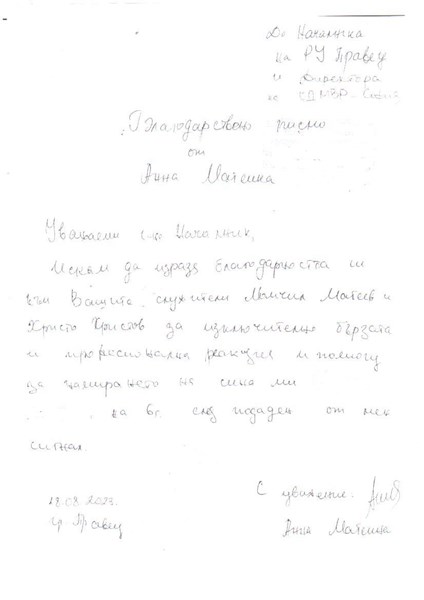 До Началника
на РУ Правец
и Директора
на СДМВР - София
Благодарствено писмо
от
Анна Матеина
Уважаеми г-н Началник,
Искам да изразя благодарността си
към Вашите служители Момчил Матеев и
Христо Христов за изключително бързата
и професионална реакция и помощ
за намирането на сина ми
на 6г. след подаден от мен
сигнал.
18.08.2023.
гр. Правец
С уважение:
Анна Матеина